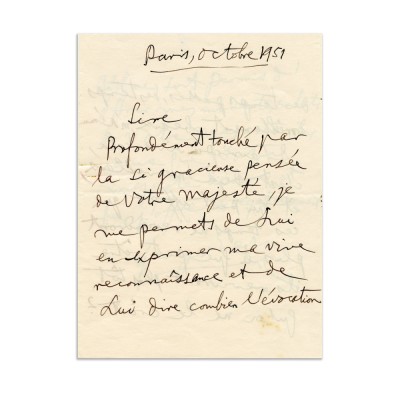 Paris, Octobre 1951
Sire
Profondément touché par
la si gracieuse pensée
de Votre Majesté, je
me permets de Lui
en exprimer ma vive
reconnaissance et de
Lui dire combien l'évocation